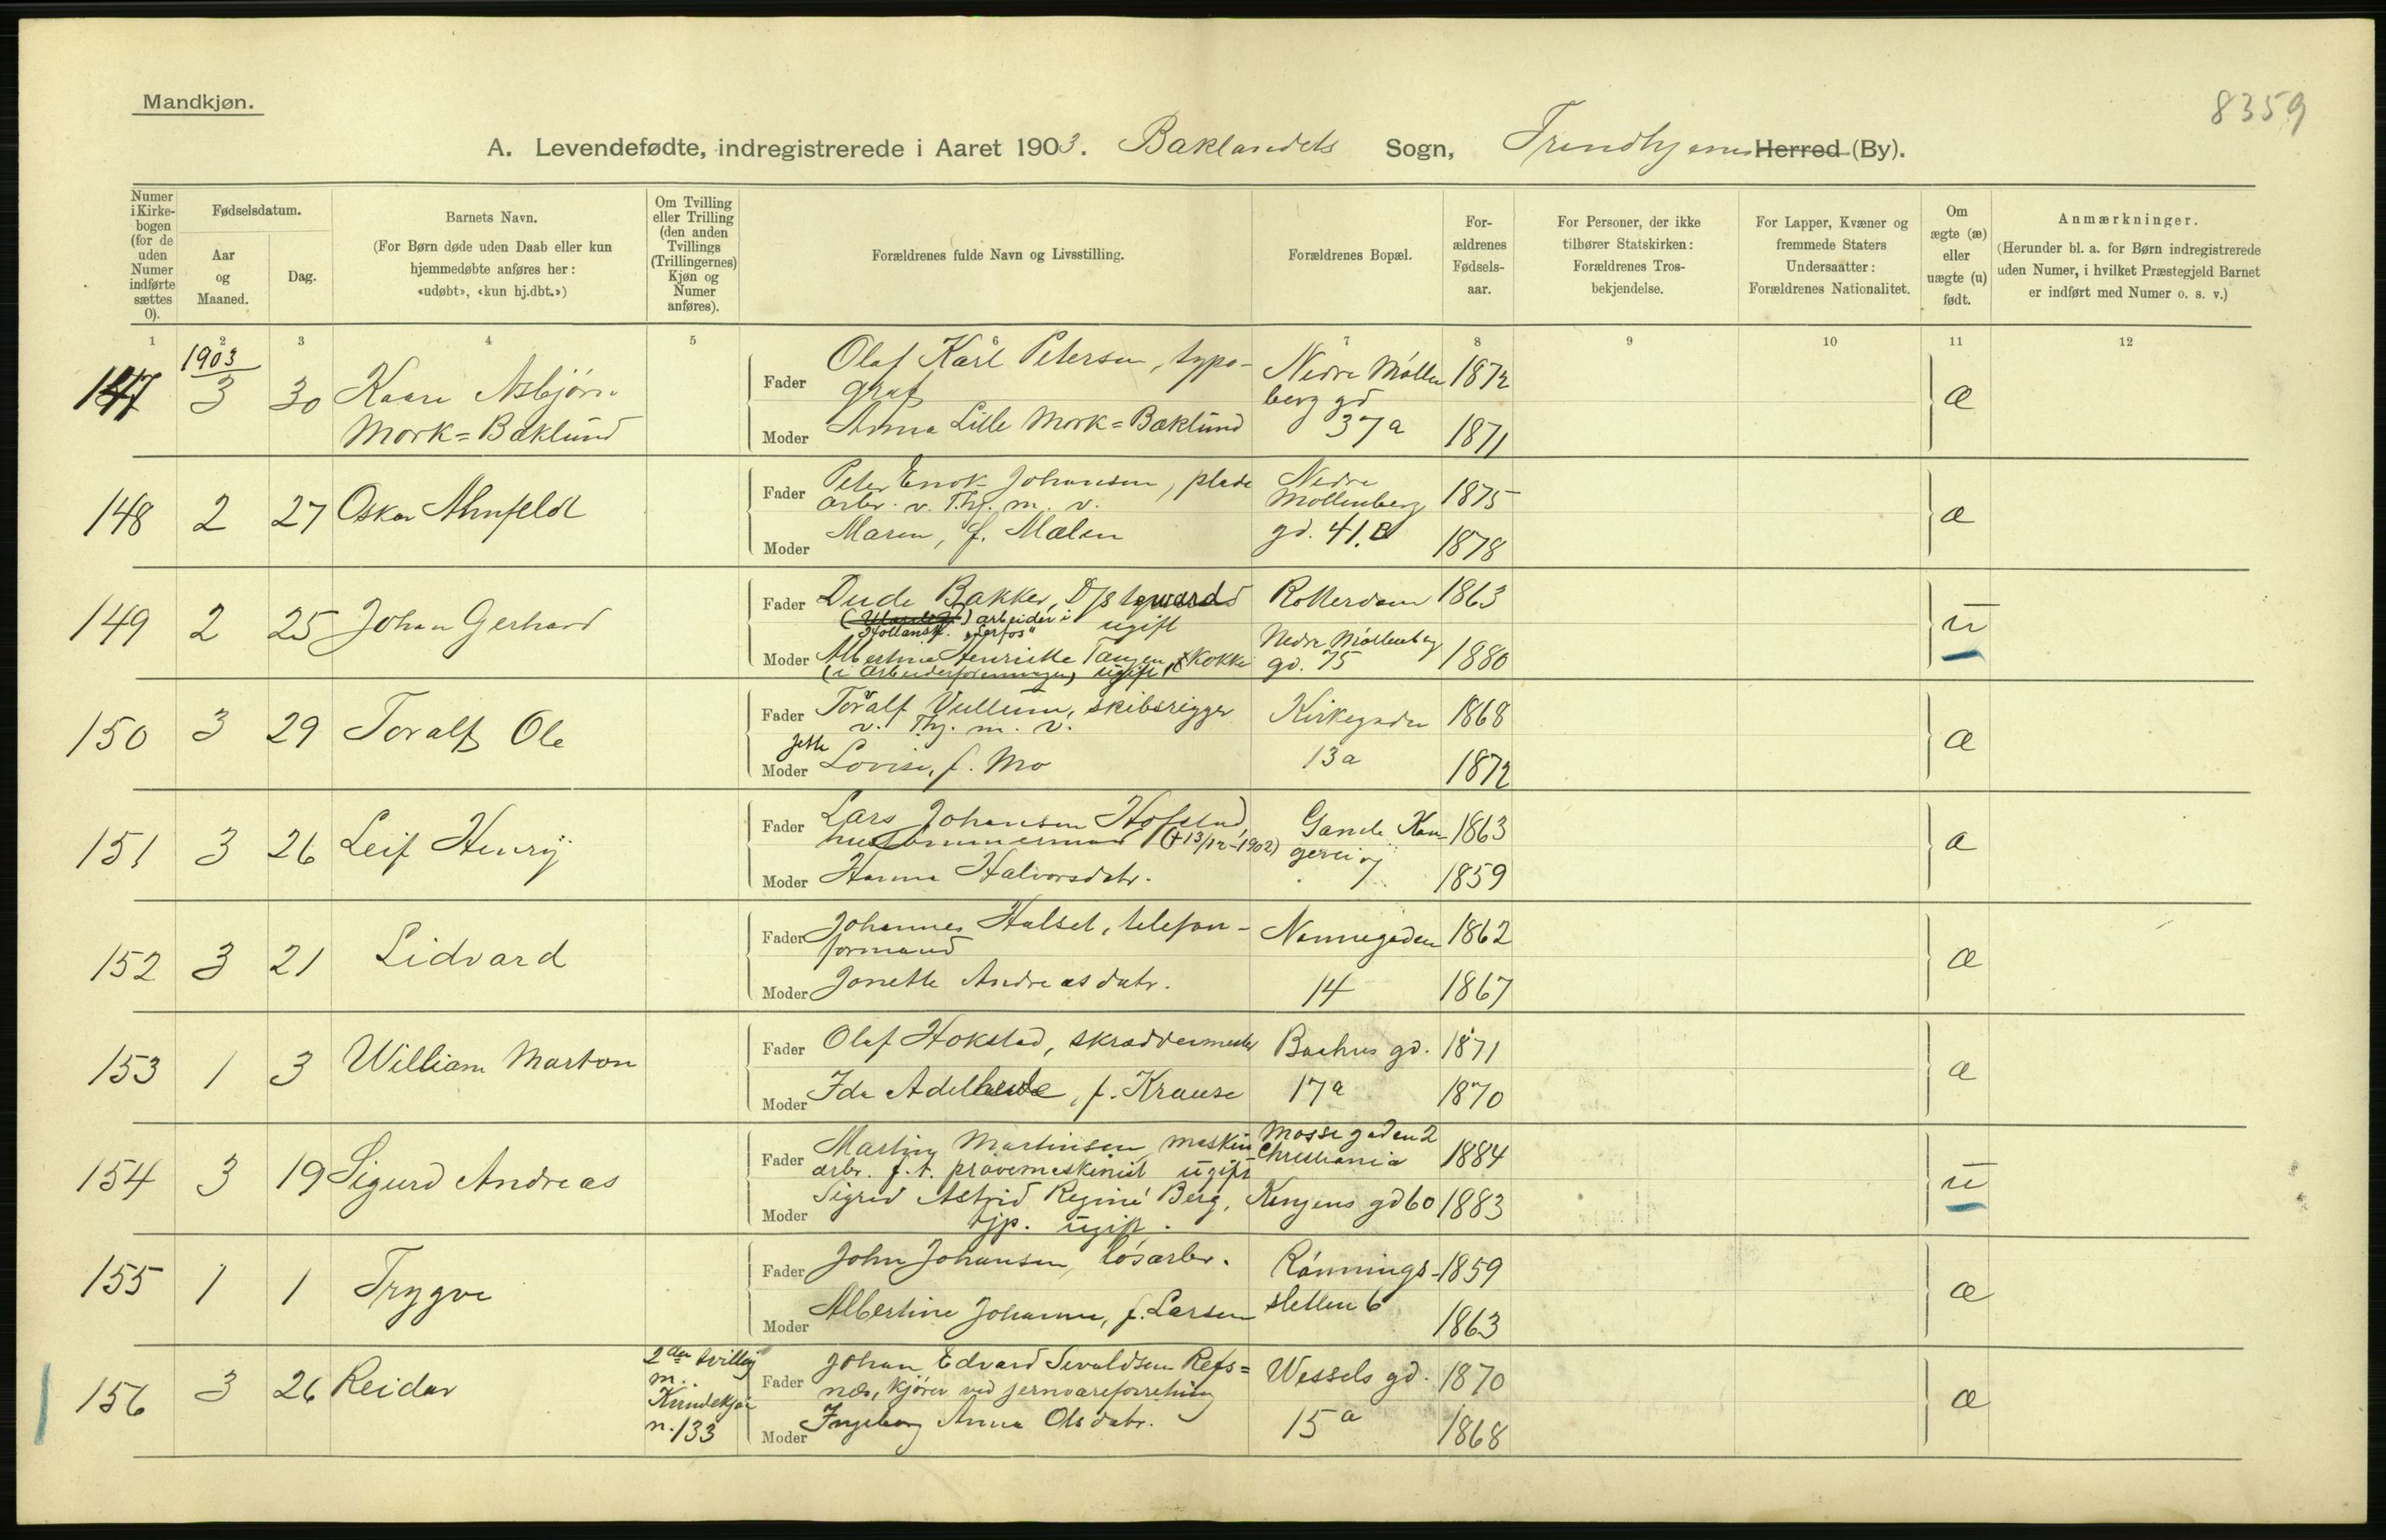 Mandkjøn.
8359
A. Levendefødte, indregistrerede i Aaret 1903. Baklandets Sogn, Trondhjems Herred (By).
Numer i Kirkebogen (for de uden Numer indførte sættes 0).
Fødselsdatum.
Aar og Maaned.
Dag.
Barnets Navn.
(For Børn døde uden Daab eller kun hjemmedøbte anføres her: «udøbt», «kun hj.dbt.»)
Om Tvilling eller Trilling (den anden Tvillings (Trillingernes) Kjøn og Numer anføres).
Forældrenes fulde Navn og Livsstilling.
Forældrenes Bopæl.
Forældrenes Fødselsaar.
For Personer, der ikke tilhører Statskirken: Forældrenes Trosbekjendelse.
For Lapper, Kvæner og fremmede Staters Undersaatter: Forældrenes Nationalitet.
Om ægte (æ) eller uægte (u) født.
Anmærkninger.
(Herunder bl. a. for Børn indregistrerede uden Numer, i hvilket Præstegjeld Barnet er indført med Numer o. s. v.)
1 2 3 4 5 6 7 8 9 10 11 12
1903
147 3 30 Kaare Asbjørn
Mork=Baklund
Fader Olaf Karl Petersen, typo-
graf
Nedre Møllen
berg gd
37a
1872
Moder Anna Lille Mork=Baklund 1871
æ
148 2 27 Oskar Ahnfeldt
Fader Peter Enok Johansen, plade
arbr. v. Thj. m. v.
Nedre
Møllenberg
gd. 41.B
1875
Moder Maren, f. Mælen 1878
æ
149 2 25 Johan Gerhard
Fader Dude Bakker,
arbeider i
Hollansk. "Lerfos" ugift
Rotterdam 1863
Moder Albertine Henrikke Tangen, Kokke
(i Arbeiderforeningen) ugift
Nedre Møllenberg
gd. 75
1880
u
150 3 29 Toralf Ole
Fader Toralf Vullum, skibsrigger
v. Thj. m. v.
Kirkegaden
13a
1868
Moder Jette Lovise, f. Mo 1872
æ
151 3 26 Leif Henry
Fader Lars Johansen Hofstad,
hustømmermand (+ 13/12 1902)
Gamle Kan-
gerei 7
1863
Moder Hanna Halvorsdatr. 1859
æ
152 3 21 Lidvard
Fader Johannes Halset, telefon-
formand
Nonnegaden
14
1862
Moder Jonette Andreasdatr. 1867
æ
153 1 3 William Marton
Fader Olaf Hokstad, skræddermester Bachus gd. 1871
Moder Ida Adelheide, f. Krause 17a 1870
æ
154 3 19 Sigurd Andreas
Fader Martin Martinsen, maskin
arbr. f. t. prøvemaskinist ugift
Mosse gaden 2
Christiania
1884
Moder Sigrid Astrid Regine Berg,
tjp. ugift.
Kongens gd 60 1883
u
155 1 1 Trygve
Fader John Johansen, løsarbr. Rønnings- 1859
Moder Albertine Johanne, f. Larsen sletten 6 1863
æ
156 3 26 Reidar
2den tvilling
m.
Kvindekjøn
n. 133
Fader Johan Edvard Sivaldsen Refs=
næs, kjører ved jernvareforretning
Wessels gd.
15a
1870
Moder Ingeborg Anna Olsdatr. 1868
æ